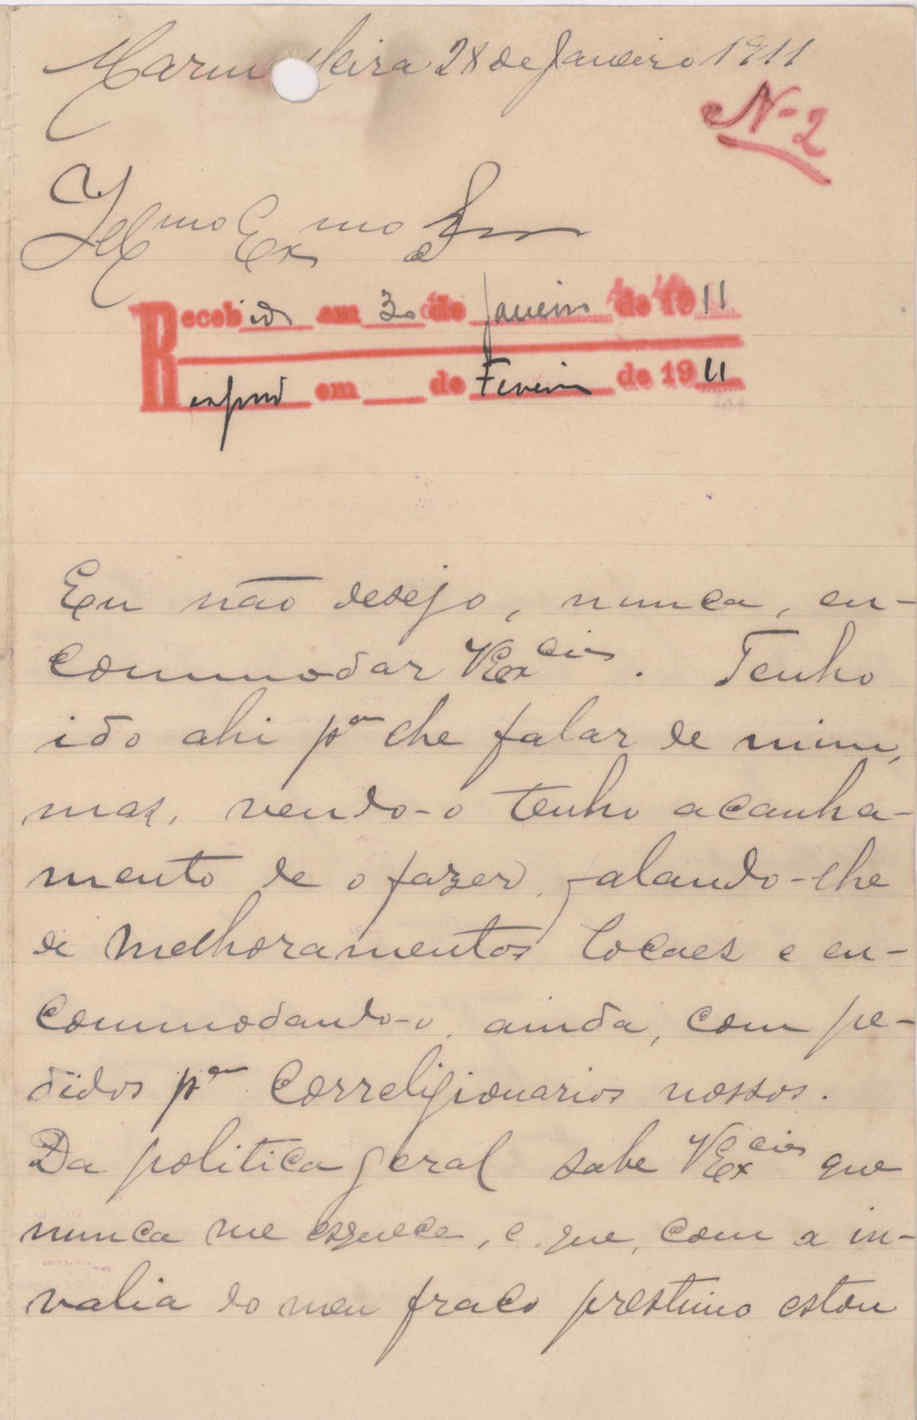 Marmeleira 28 de Janeiro 1911
N-2
Illmo Exmo Snr
Recebido em 30 de Janeiro de 1911
Respond em de Fevereiro de 1911
Eu não desejo, nunca, en-
commodar VExcia. Tenho
ido ahi pa lhe falar de mim,
mas, vendo-o tenho acanha-
mento de o fazer, falando-lhe
de melhoramentos locaes e en-
commodando-o, ainda, com pe-
didos pa correligionarios nossos.
Da politica geral sabe VExcia que
nunca me esquece, e que, com a in-
valia do meu fraco prestimo estou